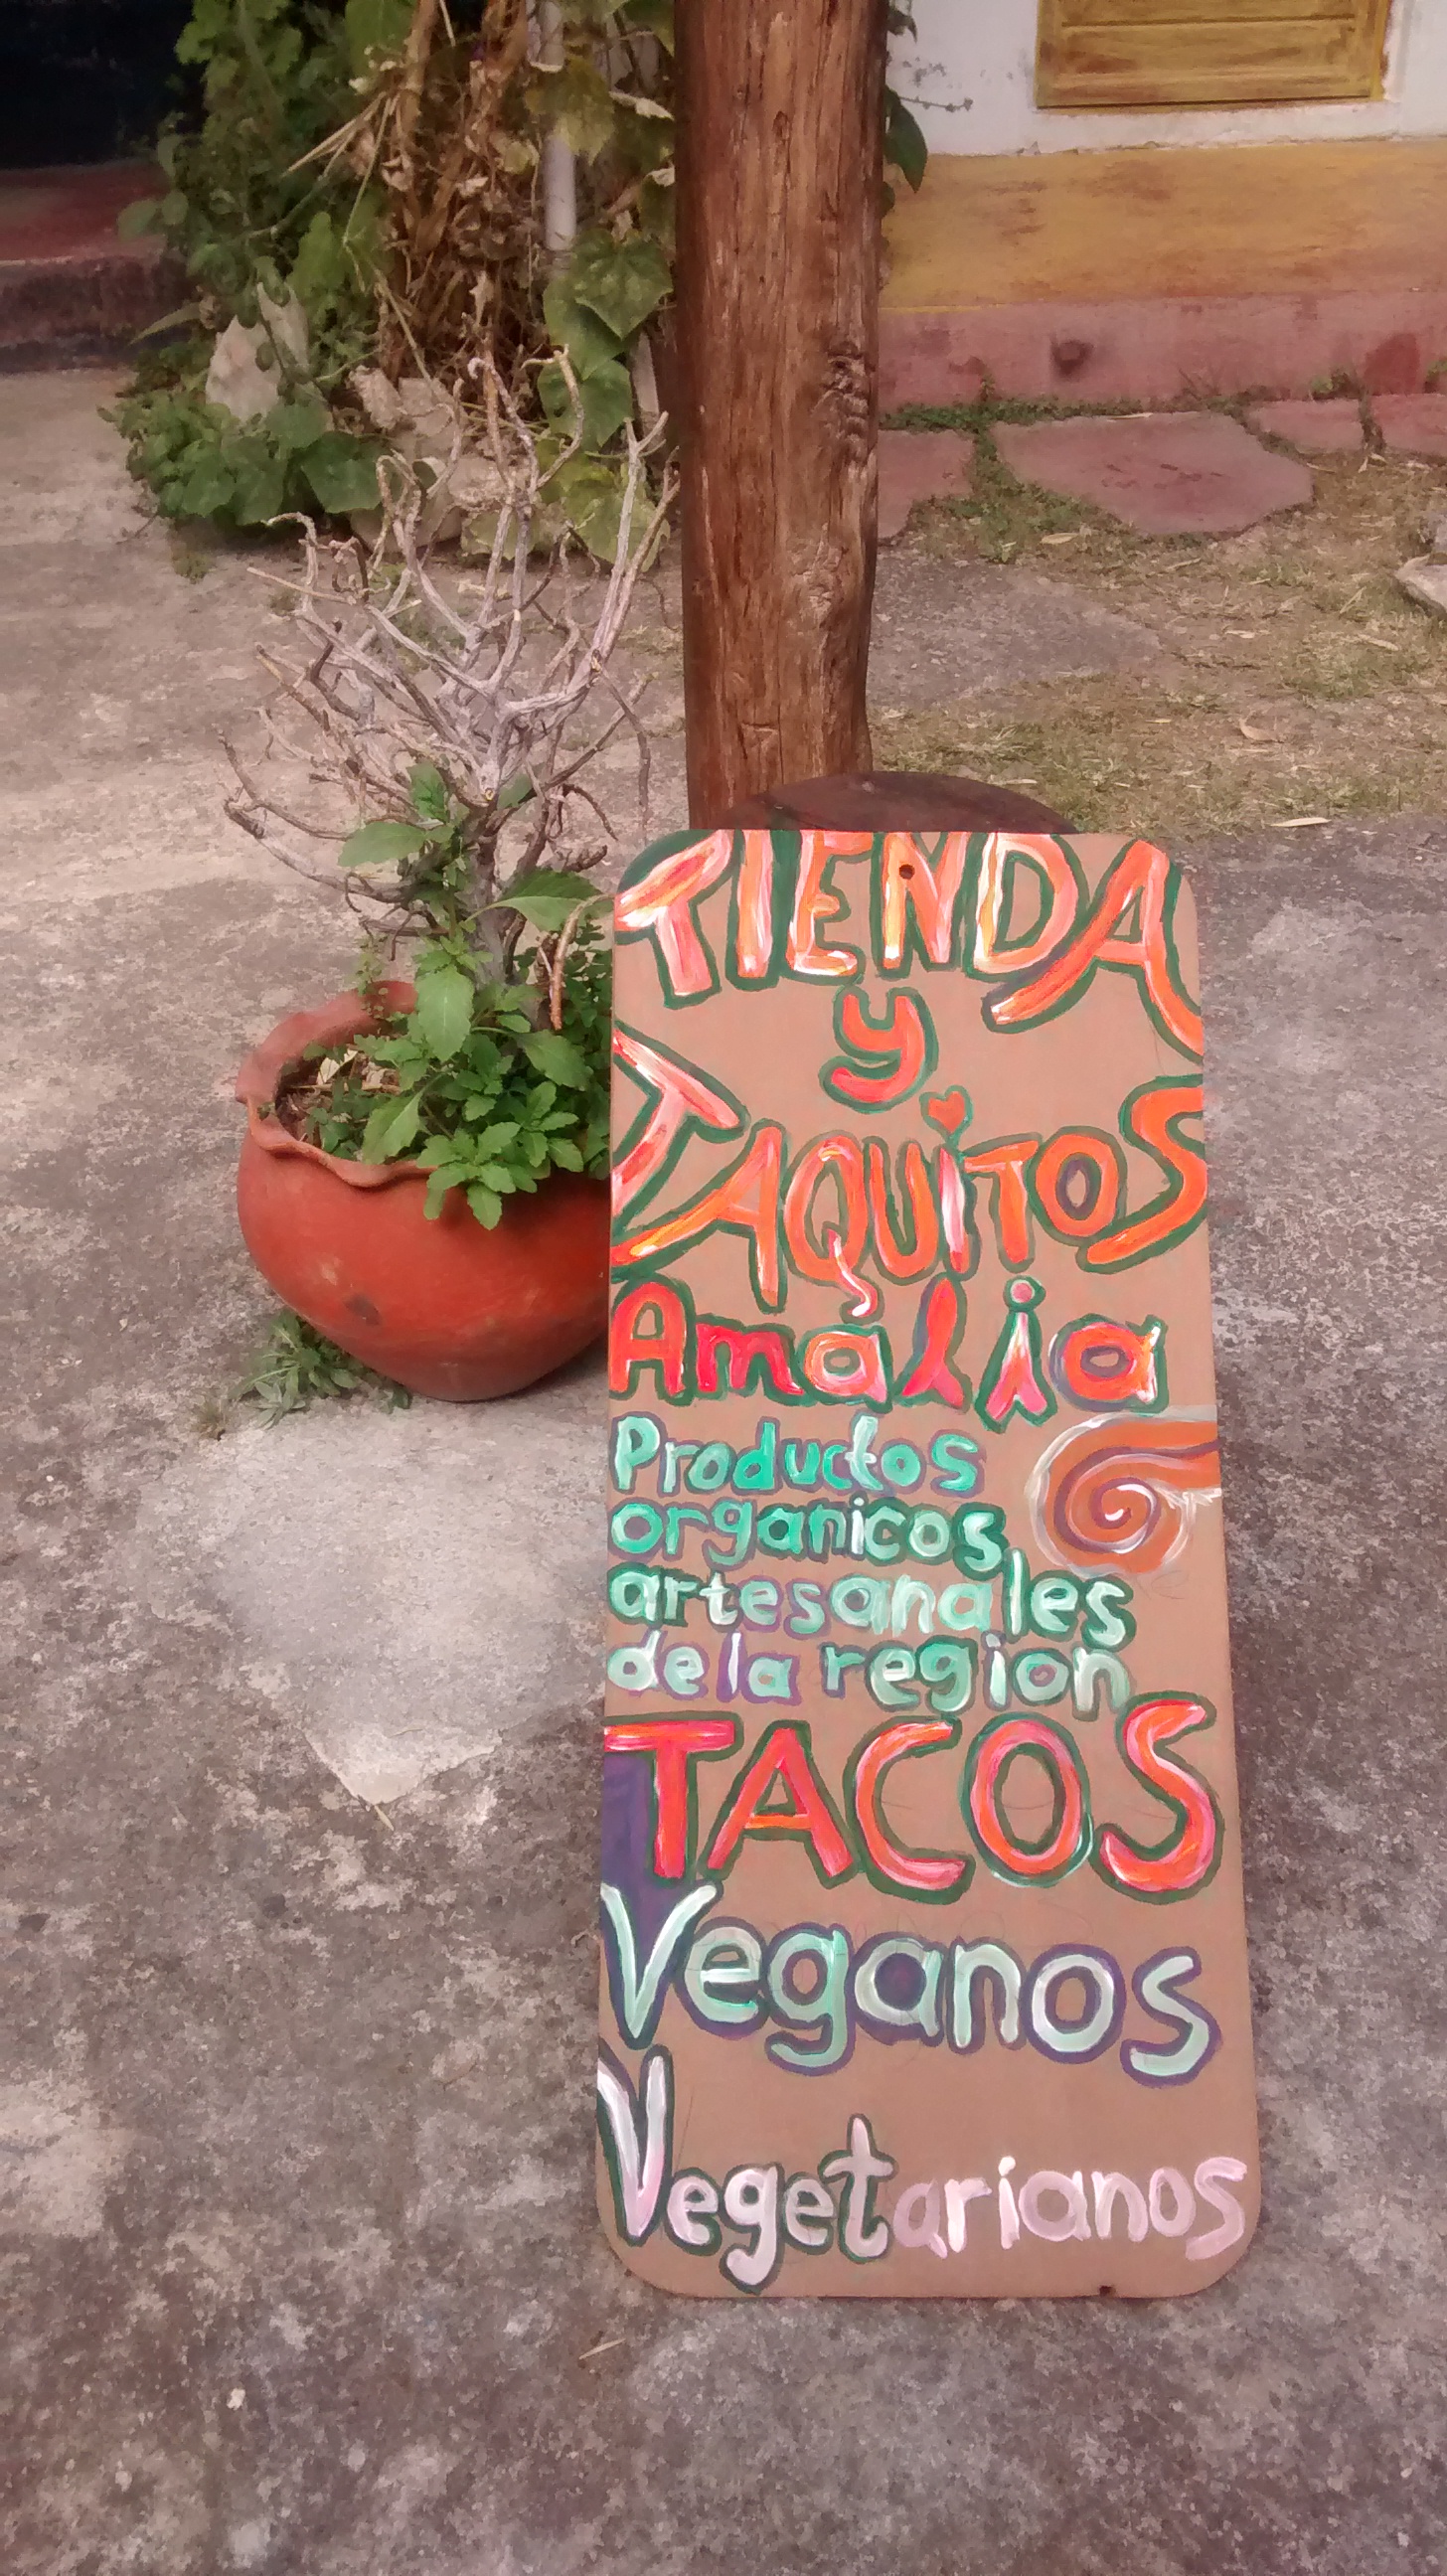 TIENDA
y
TAQUiTOS
Amalia
Productos
organicos
artesanales
de la region
TACOS
Veganos
Vegetarianos